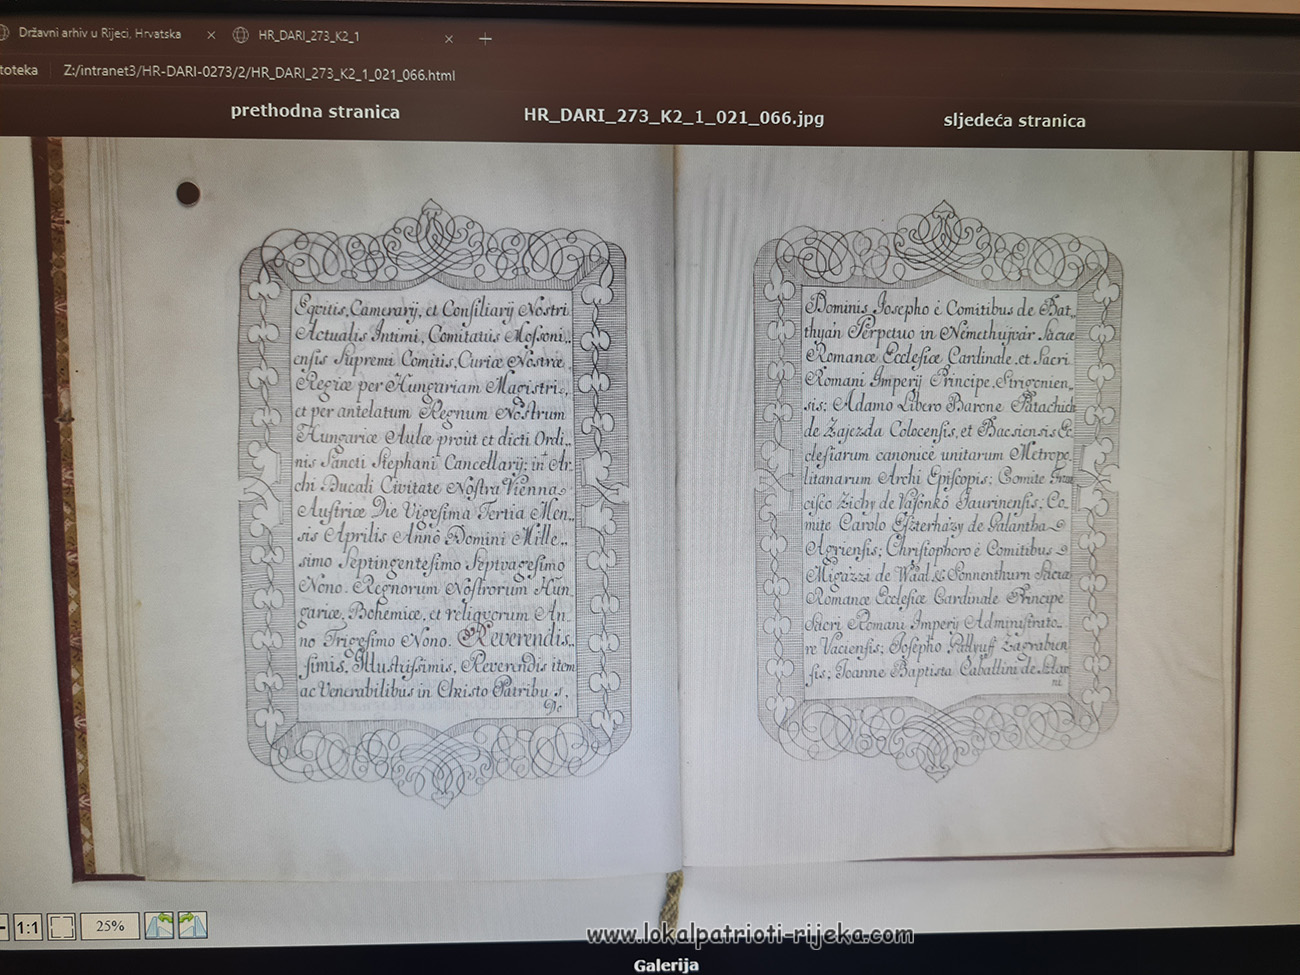 Državni arhiv u Rijeci, Hrvatska
HR_DARI_273_K2_1
toteka
Z:/intranet3/HR-DARI-0273/2/HR_DARI_273_K2_1_021_066.html
prethodna stranica
HR_DARI_273_K2_1_021_066.jpg
sljedeća stranica
Eqvitis, Camerarij, et Consiliarij Nostri
Actualis Intimi, Comitatus Mossoni„
ensis Supremi Comitis, Curiæ Nostræ,
Regiæ per Hungariam Magistri„,
et per antelatum Regnum Nostrum
Hungariæ Aulæ prout et dicti Ordi„
nis Sancti Stephani Cancellarij: in Ar„
chi Ducali Civitate Nostra Vienna
Austriæ Die Vigesima Tertia Men„
sis Aprilis Anno Domini Mille„
simo Septingentesimo Septvagesimo
Nono. Regnorum Nostrorum Hun„
gariæ, Bohemiæ, et reliqvorum An„
no Trigesimo Nono. Reverendis„
simis, Illustrissimis, Reverendis item
ac Venerabilibus in Christo Patribus,
Do
Dominis Josepho è Comitibus de Bat„
thyán Perpetuo in Némethujvár Sacræ
Romanæ Ecclesiæ Cardinale, et Sacri
Romani Imperij Principe, Strigonien„
sis; Adamo Libero Barone Patachich
de Zajezda Colocensis, et Bacsiensis Ec
clesiarum canonicè unitarum Metropo
litanarum Archi Episcopis; Comite Fran
cisco Zichy de Vásonkö Jaurinensis; Co„
mite Carolo Eszterházy de Galantha
Agriensis; Christophoro è Comitibus
Migazzi de Waal & Sonnenthurn Sacræ
Romanæ Ecclesiæ Cardinale Principe
Sacri Romani Imperij Administrato„
re Vaciensis; Josepho Gallyuff Zagrabien
sis; Joanne Baptista Caballini de
ni.
1:1
25%
www.lokalpatrioti-rijeka.com
Galerija